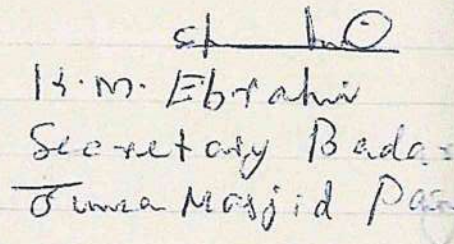 K.M. Ebrahi
Secretary Bada
Juma Masjid Pa